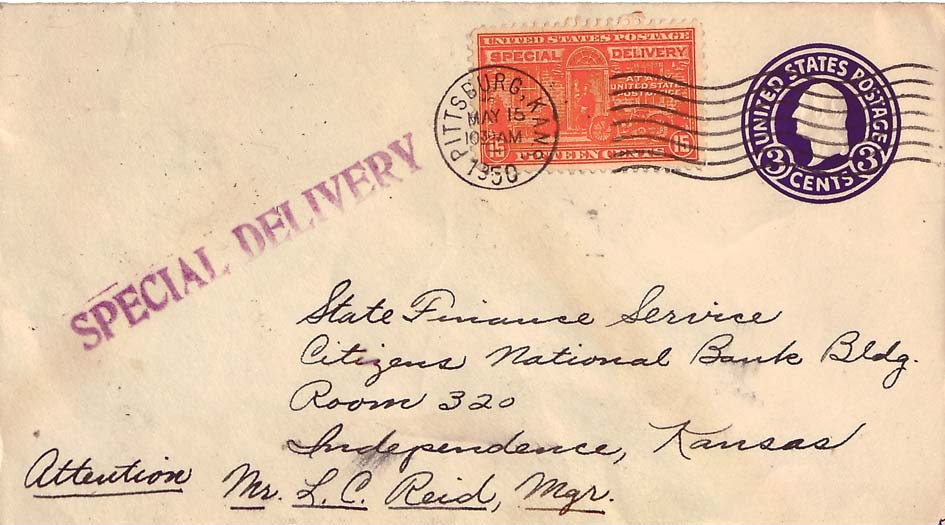 UNITED STATES POSTAGE
SPECIAL DELIVERY
AT ANY
UNITED STATES
POST OFFICE
15 FIFTEEN CENTS 15
PITTSBURG, KANS.
MAY 15
1950
UNITED STATES POSTAGE
3 CENTS 3
SPECIAL DELIVERY
State Finance Service
Citizens National Bank Bldg.
Room 320
Independence, Kansas
Attention Mr. L. C. Reid, Mgr.